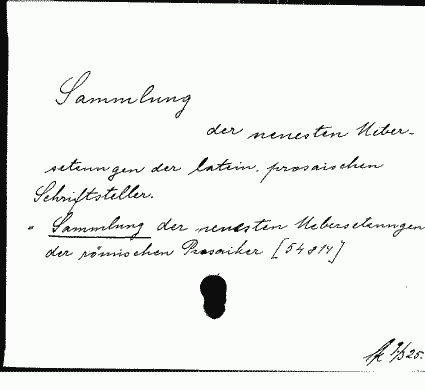 Sammlung
der neuesten Ueber-
setzungen der latein. prosaischen
Schriftsteller.
" Sammlung der neuesten Uebersetzungen
der römischen Prosaiker [54814]